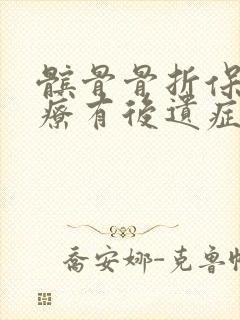 髌骨骨折保
療有後遺症
喬安娜-克鲁